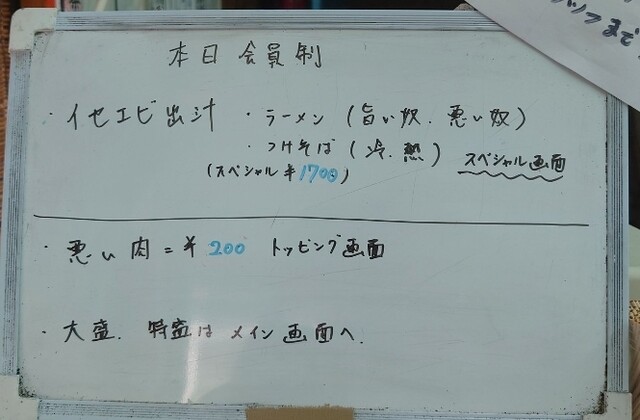 本日会員制
・イセエビ出汁 ・ラーメン (旨い奴.悪い奴)
・つけそば (冷.熱)
(スペシャル¥1700) スペシャル画面
・悪い肉=¥200 トッピング画面
・大盛.特盛はメイン画面へ.
まで